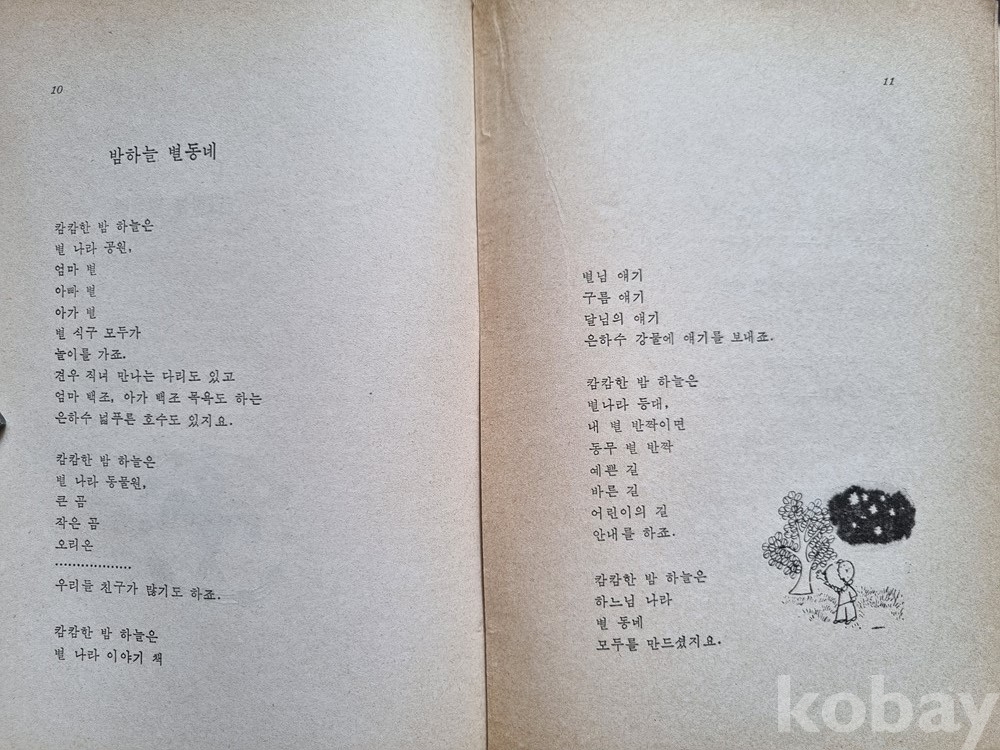 10
밤하늘 별동네
캄캄한 밤 하늘은
별 나라 공원,
엄마 별
아빠 별
아가 별
별 식구 모두가
놀이를 가죠.
견우 직녀 만나는 다리도 있고
엄마 백조, 아가 백조 목욕도 하는
은하수 넓푸른 호수도 있지요.
캄캄한 밤 하늘은
별 나라 동물원,
큰 곰
작은 곰
오리온
··················
우리들 친구가 많기도 하죠.
캄캄한 밤 하늘은
별 나라 이야기 책
11
별님 얘기
구름 얘기
달님의 얘기
은하수 강물에 얘기를 보내죠.
캄캄한 밤 하늘은
별나라 등대,
내 별 반짝이면
동무 별 반짝
예쁜 길
바른 길
어린이의 길
안내를 하죠.
캄캄한 밤 하늘은
하느님 나라
별 동네
모두를 만드셨지요.
kobay